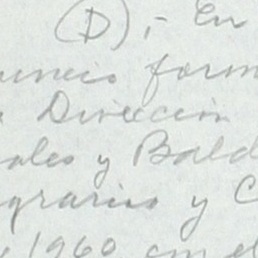 (D),- En
forma
Dirección
ales y Bald
grarios y C
1960 en el